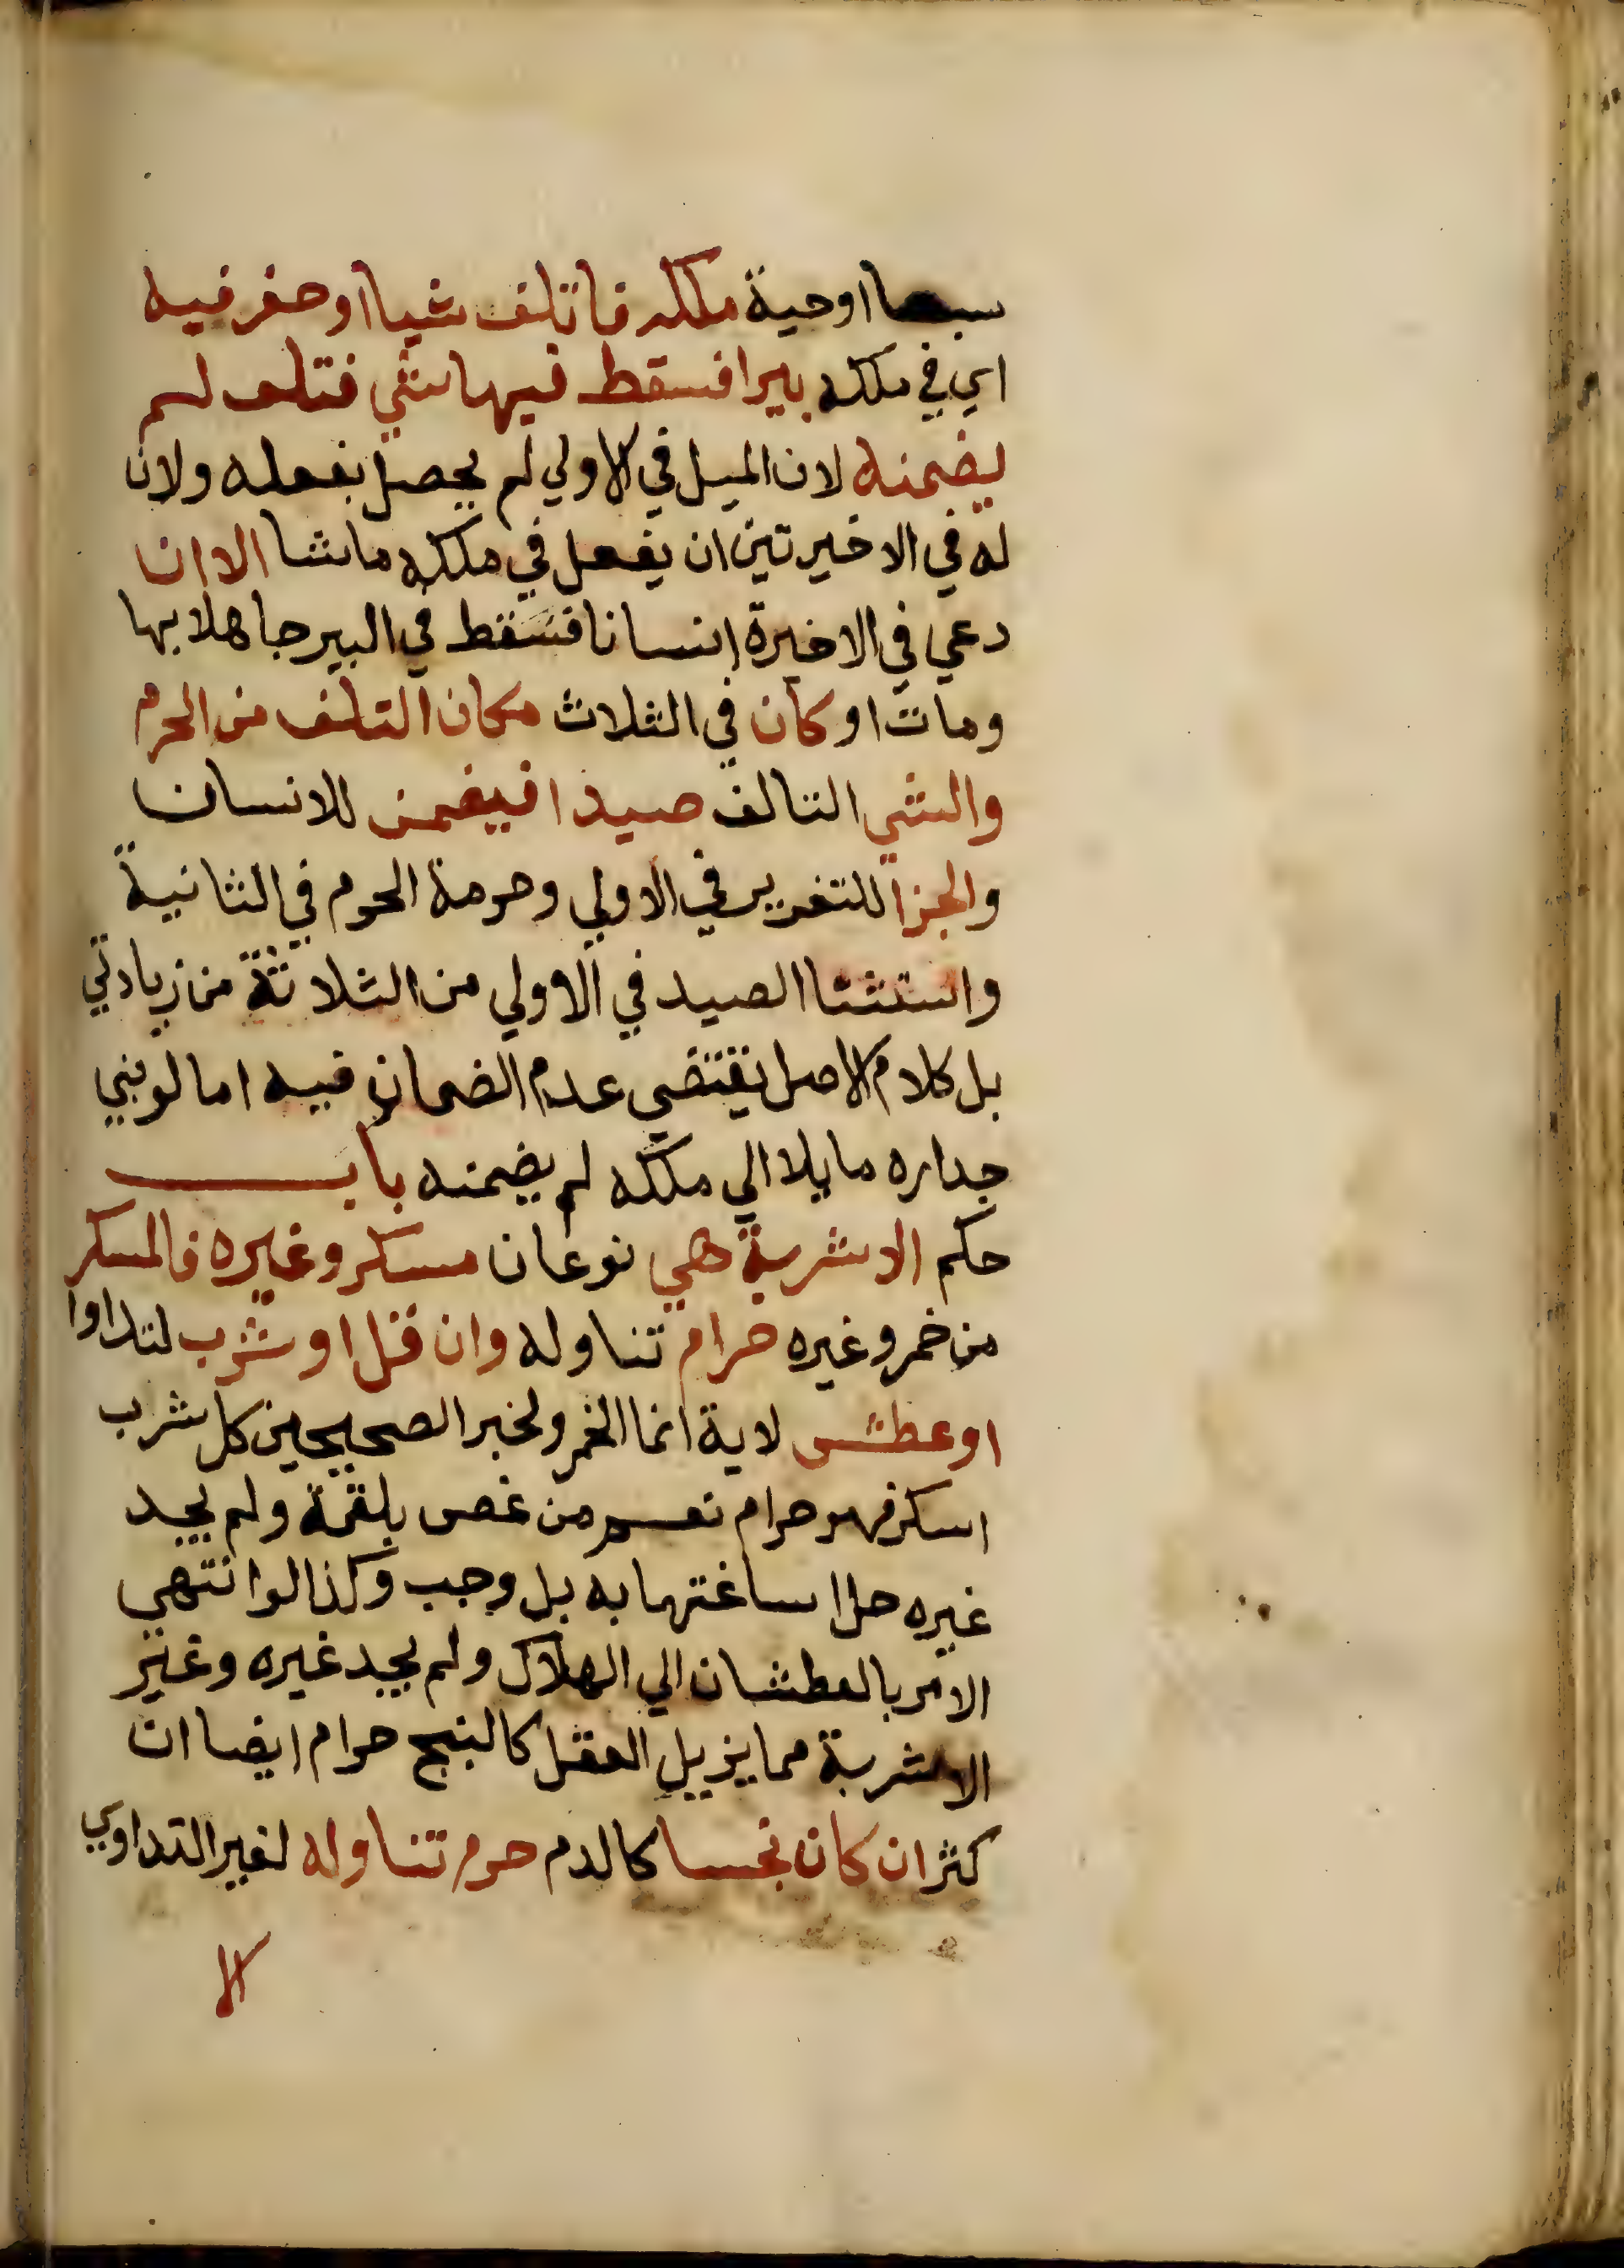 سبعا او حية ملكه فاتلف شيا او حفر فيه
اي في ملكه بيرا فسقط فيها شي فتلف لم
يضمنه لان الميل في الاولي لم يحصل بفعله ولان
له في الاخيرتين ان يفعل في ملكه ما شا الا ان
دعي في الاخيرة انسانا فسقط في البير جاهلا بها
ومات او كان في الثلاث مكان التلف من الحرم
والشي التالف صيدا فيضمن للانسان
والجزا للتغرير في الاولي وحرمة الحرم في الثانية
واستثنا الصيد في الاولي من الثلاثة من زيادتي
بل كلام الاصل يقتضي عدم الضمان فيه اما لو بني
جداره مايلا الي ملكه لم يضمنه باب
حكم الاشربة هي نوعان مسكر وغيره فالمسكر
من خمر وغيره حرام تناوله وان قل او شرب لتداوا
او عطش لاية انما الخمر ولخبر الصحيحين كل شرب
اسكر فهو حرام نعم من غص بلقمة ولم يجد
غيره حل اساغتها به بل وجب وكذا لو انتهي
الامر بالعطشان الي الهلاك ولم يجد غيره وغير
الاشربة مما يزيل العقل كالبنج حرام ايضا ان
كثر ان كان نجسا كالدم حرم تناوله لغير التداوي
الا